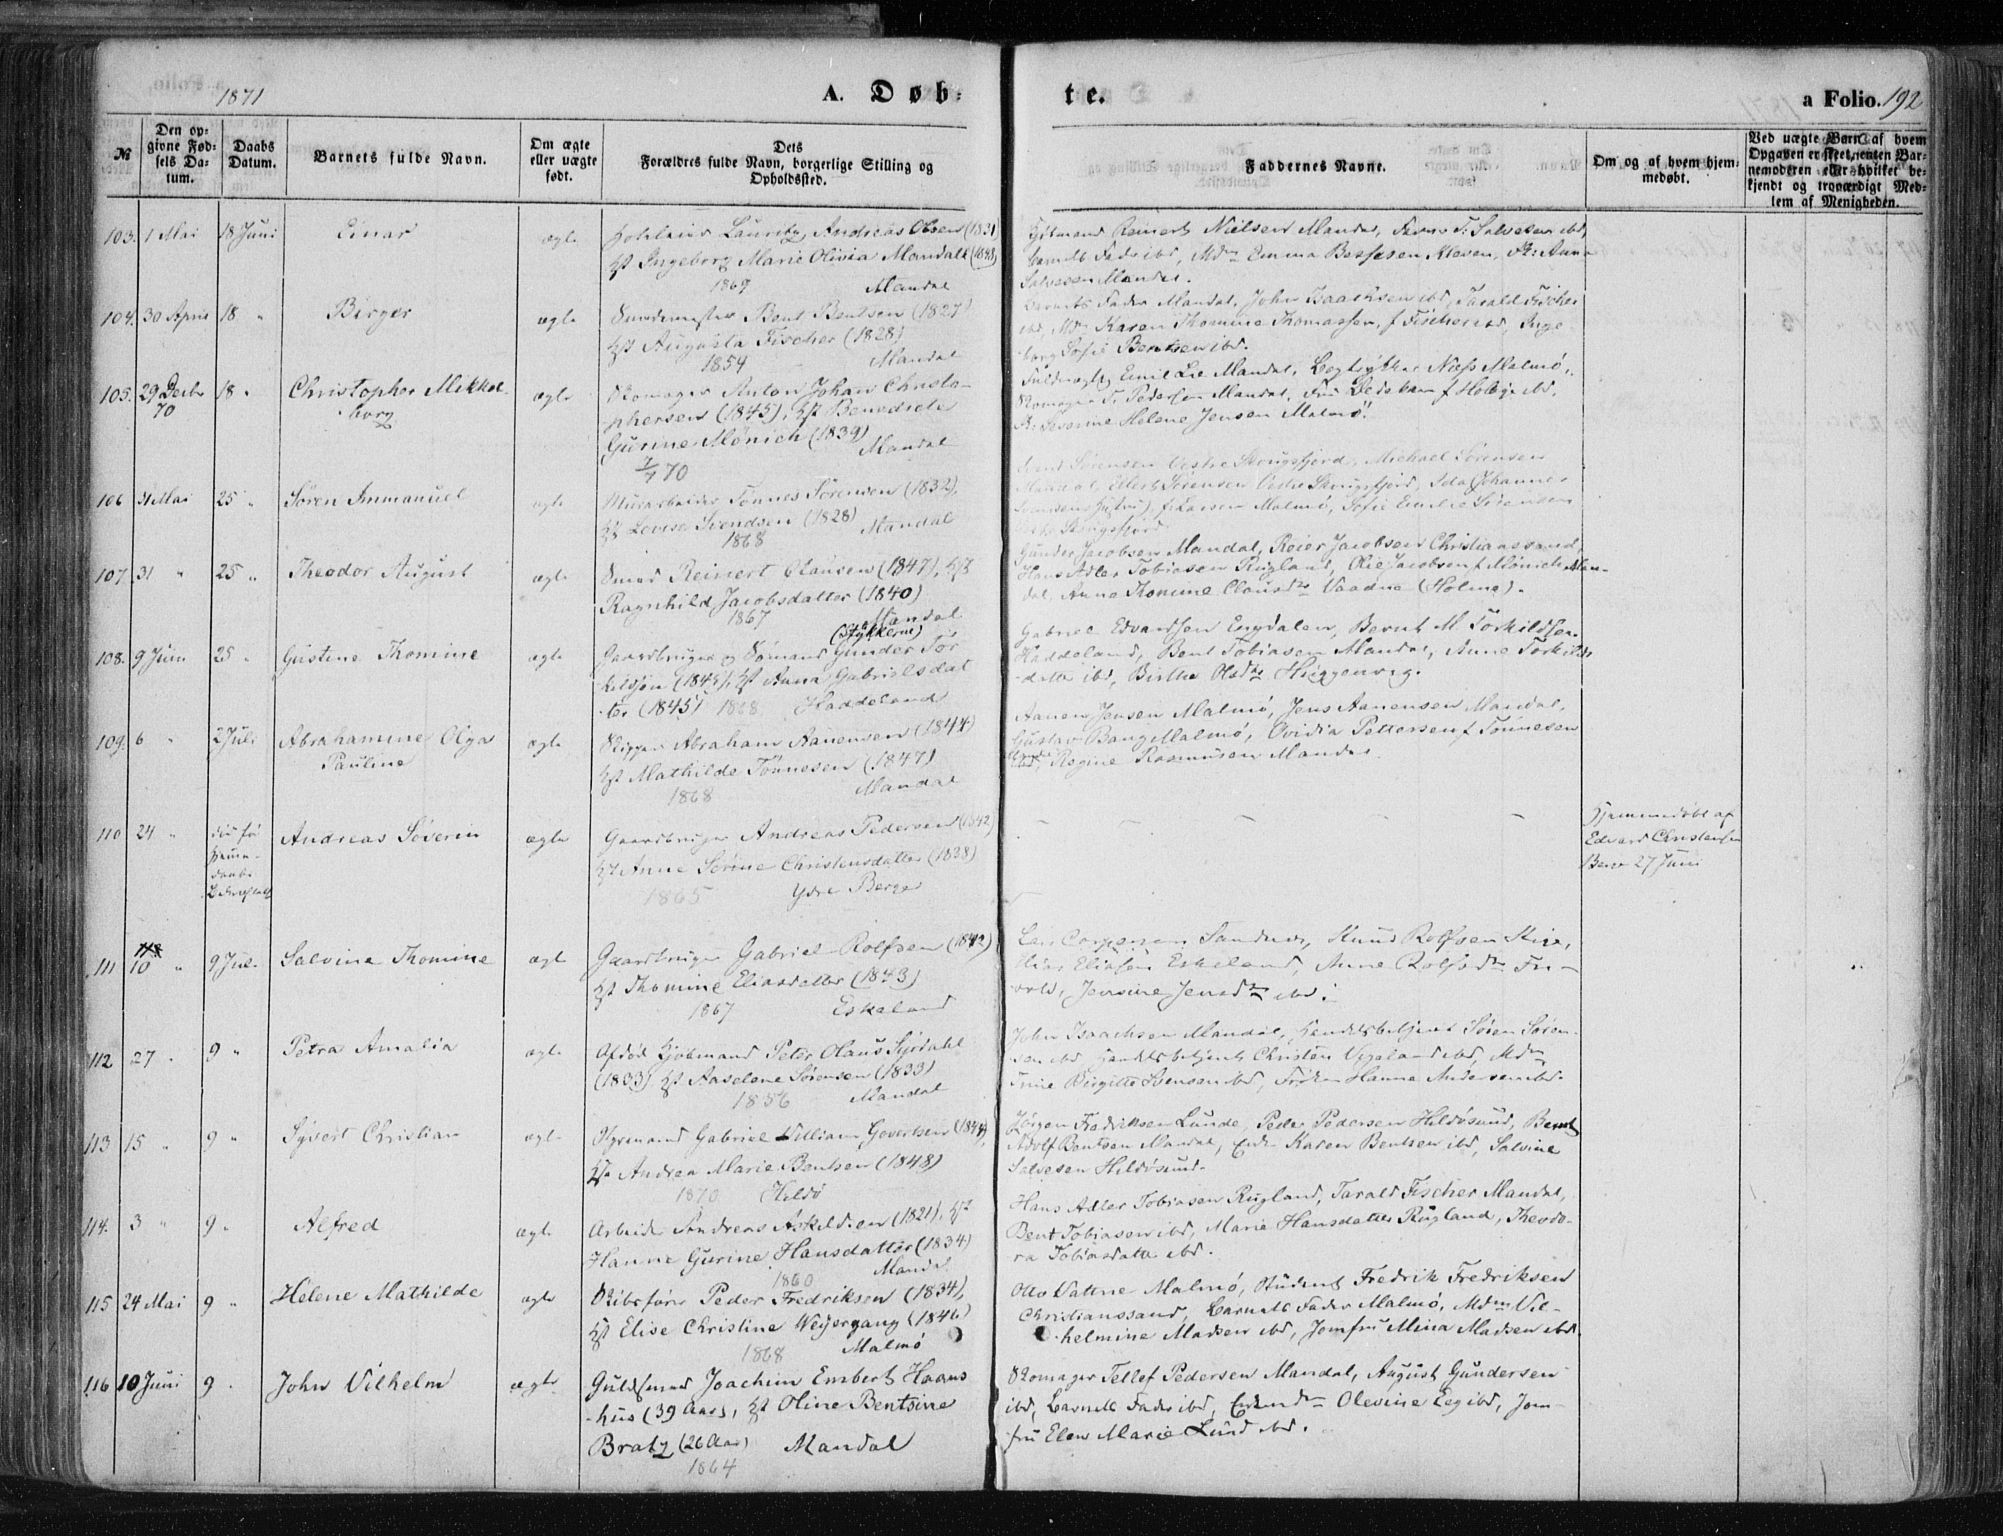 1871
A. Døb:
te.
a Folio. 192
№
Den op-
givne Fød-
sels Da-
tum.
Daabs
Datum.
Barnets fulde Navn.
Om ægte
eller uægte
født.
Dets
Forældres fulde Navn, borgerlige Stilling og
Opholdssted.
Faddernes Navne.
Om og af hvem hjem-
medøbt.
Ved uægte Barn af hvem
Opgaven er skeet, enten Bar-
nemoderen eller hvilket be-
kjendt og troværdigt Med-
lem af Menigheden.
103. 1 Mai 18 Juni Einar ægte Lauritz Andreas Olsen (1831)
Hst Ingeborg Marie Olivia Mandahl (1848)
1869 Mandal
Reinert Nielsen Mandal, T. Salvesen ibd,
barnets Fader ibd, Mdm Emma Kleven,
Salvesen Mandal.
104. 30 April 18 " Birger ægte Bent Bentsen (1827)
Hst Augusta Fischer (1828)
1854 Mandal
Barnets Fader Mandal, John Isaachsen ibd, Tarald Fischer
ibd, Mdm Karen Thomine Thomassen f Fischer ibd, Inge-
borg Sofie Bentsen ibd.
105. 29 Decbr 70 18 " Christopher Mikkel-
borg ægte Skomager Anton Johan Christo-
phersen (1845), Hst Benedicte
Gurine Mönich (1839)
7/7 70 Mandal
Fuldmægtig Emil Lie Mandal, Bogtrykker Næss Malmø,
Skomager T. Pedersen Mandal, Fru f Holbye ibd,
Severine Helene Jensen Malmø.
106 31 Mai 25 " Sören Immanuel ægte Murarbeider Tönnes Sörensen (1832),
Hst Lovise Svendsen (1828)
1868 Mandal
Sörensen Vestre Skougsfjord, Michael Sörensen
Mandal, Sörensen Vestre Skougsfjord, Ida Johanne
f Larsen Malmø, Sofie Emilie Sörensen
Skougsfjord
107. 31 " 25 " Theodor August ægte Smed Reinert Clausen (1847), Hst
Ragnhild Jacobsdatter (1840)
1867 Mandal
Gunder Jacobsen Mandal, Reier Jacobsen Christianssand,
Hans Adler Tobiasen Rugland, Olie Jacobsen f Mönich Man-
dal, Anne Tomine Clausdtr Vaadne (Holme).
108. 9 Juni 25 " Gustine Thomine ægte Gaardbruger og Sömand Gunder Tor-
kildsen (1845), Hst Anna Gabrielsdat-
ter (1845) 1868 Haddeland
Gabriel Edvardsen Engdalen, Bernt M Torkildsen
Haddeland, Bent Tobiasen Mandal, Anne Torkilds-
datter ibd, Birthe Olsdtr
109. 6 " 2 Juli Abrahamine Olga
Pauline ægte Skipper Abraham Aanensen (1844)
Hst Mathilde Tönnesen (1847)
1868 Mandal
Aanen Jensen Malmø, Jens Aanensen Mandal,
Gustav Bang Malmø, Ovidia Pettersen f Tönnesen
Regine Rasmussen Mandal
110 24 " Andreas Söverin ægte Gaardbruger Andreas Pedersen (1842)
Hst Anne Serine Christensdatter (1838)
1865 Ydre Berge
Hjemmedöbt af
Edvard Christensen
Berge 27 Juni
111 10 " 9 Jul. Salvine Thomine ægte Gaardbruger Gabriel Rolfsen (1842)
Hst Thomine Eliasdatter (1843)
1867 Eskeland
Knud Rolfsen
Elias Eliasen Eskeland, Anne Rolfsdtr
Jensine Jensdtr ibd.
112 27 " 9 " Petra Amalia ægte Afdöd Kjöbmand Peter Olaus Syrdahl
(1833) Hst Aaselene Sörensen (1833)
1856 Mandal
John Isaachsen Mandal, Handelsbetjent Sören Sören-
sen ibd, Handelsbetjent Christen Vigeland ibd, Mdm
Trine Birgitte Svensen ibd, Fröken Hanne Andersen ibd.
113 15 " 9 " Syvert Christian ægte Styrmand Gabriel William Govertsen (1844),
Hst Andrea Marie Bentsen (1848)
1870 Hildö
Jörgen Fredriksen Lunde, Peder Pedersen Hildösund, Bernt
Adolf Bentsen Mandal, Karen Bentsen ibd, Salvine
Salvesen Hildösund.
114. 3 " 9 " Alfred ægte Arbeider Andreas Askildsen (1821), Hst
Hanne Gurine Hansdatter (1834)
1860 Mandal
Hans Adler Tobiasen Rugland, Tarald Fischer Mandal,
Bent Tobiasen ibd, Marie Hansdatter Rugland, Theodo-
ra Tobiasdatter ibd.
115 24 Mai 9 " Helene Mathilde ægte Skibsförer Peder Fredriksen (1834),
Hst Elise Christine Weyergang (1846)
1868 Malmø
Otto Vattne Malmø, Student Fredrik Fredriksen
Christianssand, barnets Fader Malmø, Mdm Vil-
helmine Madsen ibd, Jomfru Mina Madsen ibd.
116 10 Juni 9 " John Vilhelm ægte Guldsmed Joachim Embert Haans-
hus (39 Aar), Hst Oline Bentsine
Bratz (26 Aar) Mandal
1864
Skomager Tellef Pedersen Mandal, August Gundersen
ibd, barnets Fader ibd, Olevine Eeg ibd, Jom-
fru Elen Marie Lund ibd.